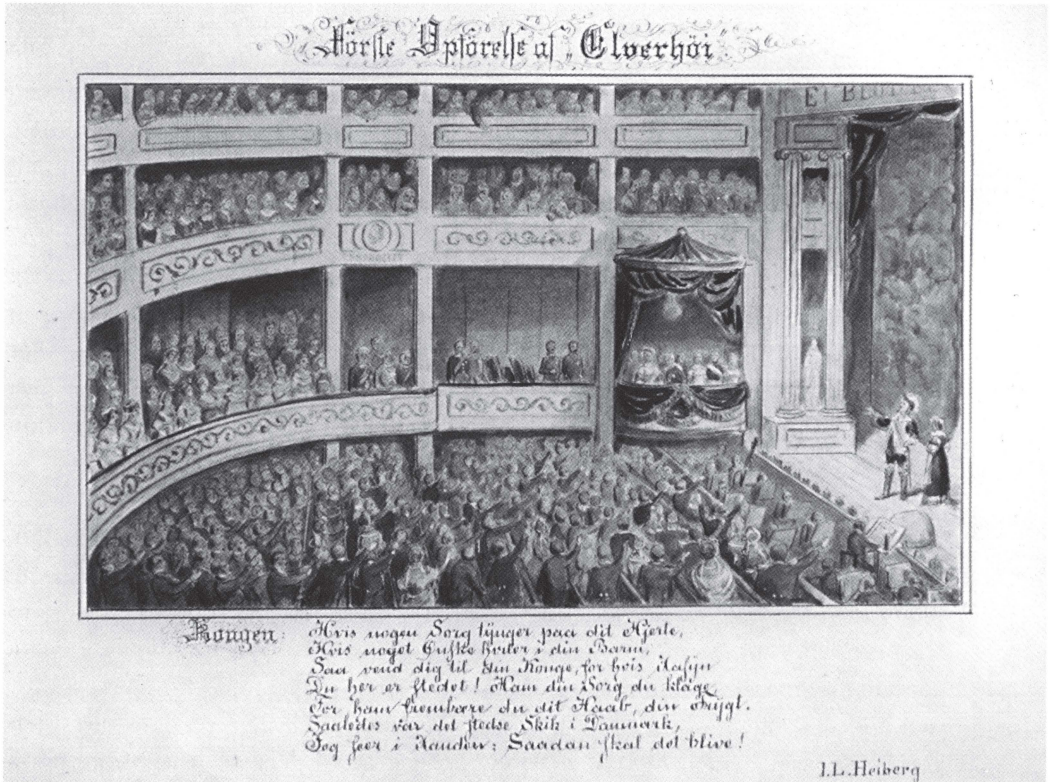 Förste Opförelse af „Elverhöi”
EI BLOT
Kongen: Hvis nogen Sorg tÿnger paa dit Hjerte,
Hvis noget Önske hviler i din Barm,
Saa vend dig til din Konge, for hvis Aasÿn
Du her er stedet! Ham din Sorg du klage,
For ham frembære du dit Haab, din Frÿgt.
Saaledes var det stedse Skik i Danmark,
Jeg seer i Aanden: Saadan skal det blive!
I.L. Heiberg